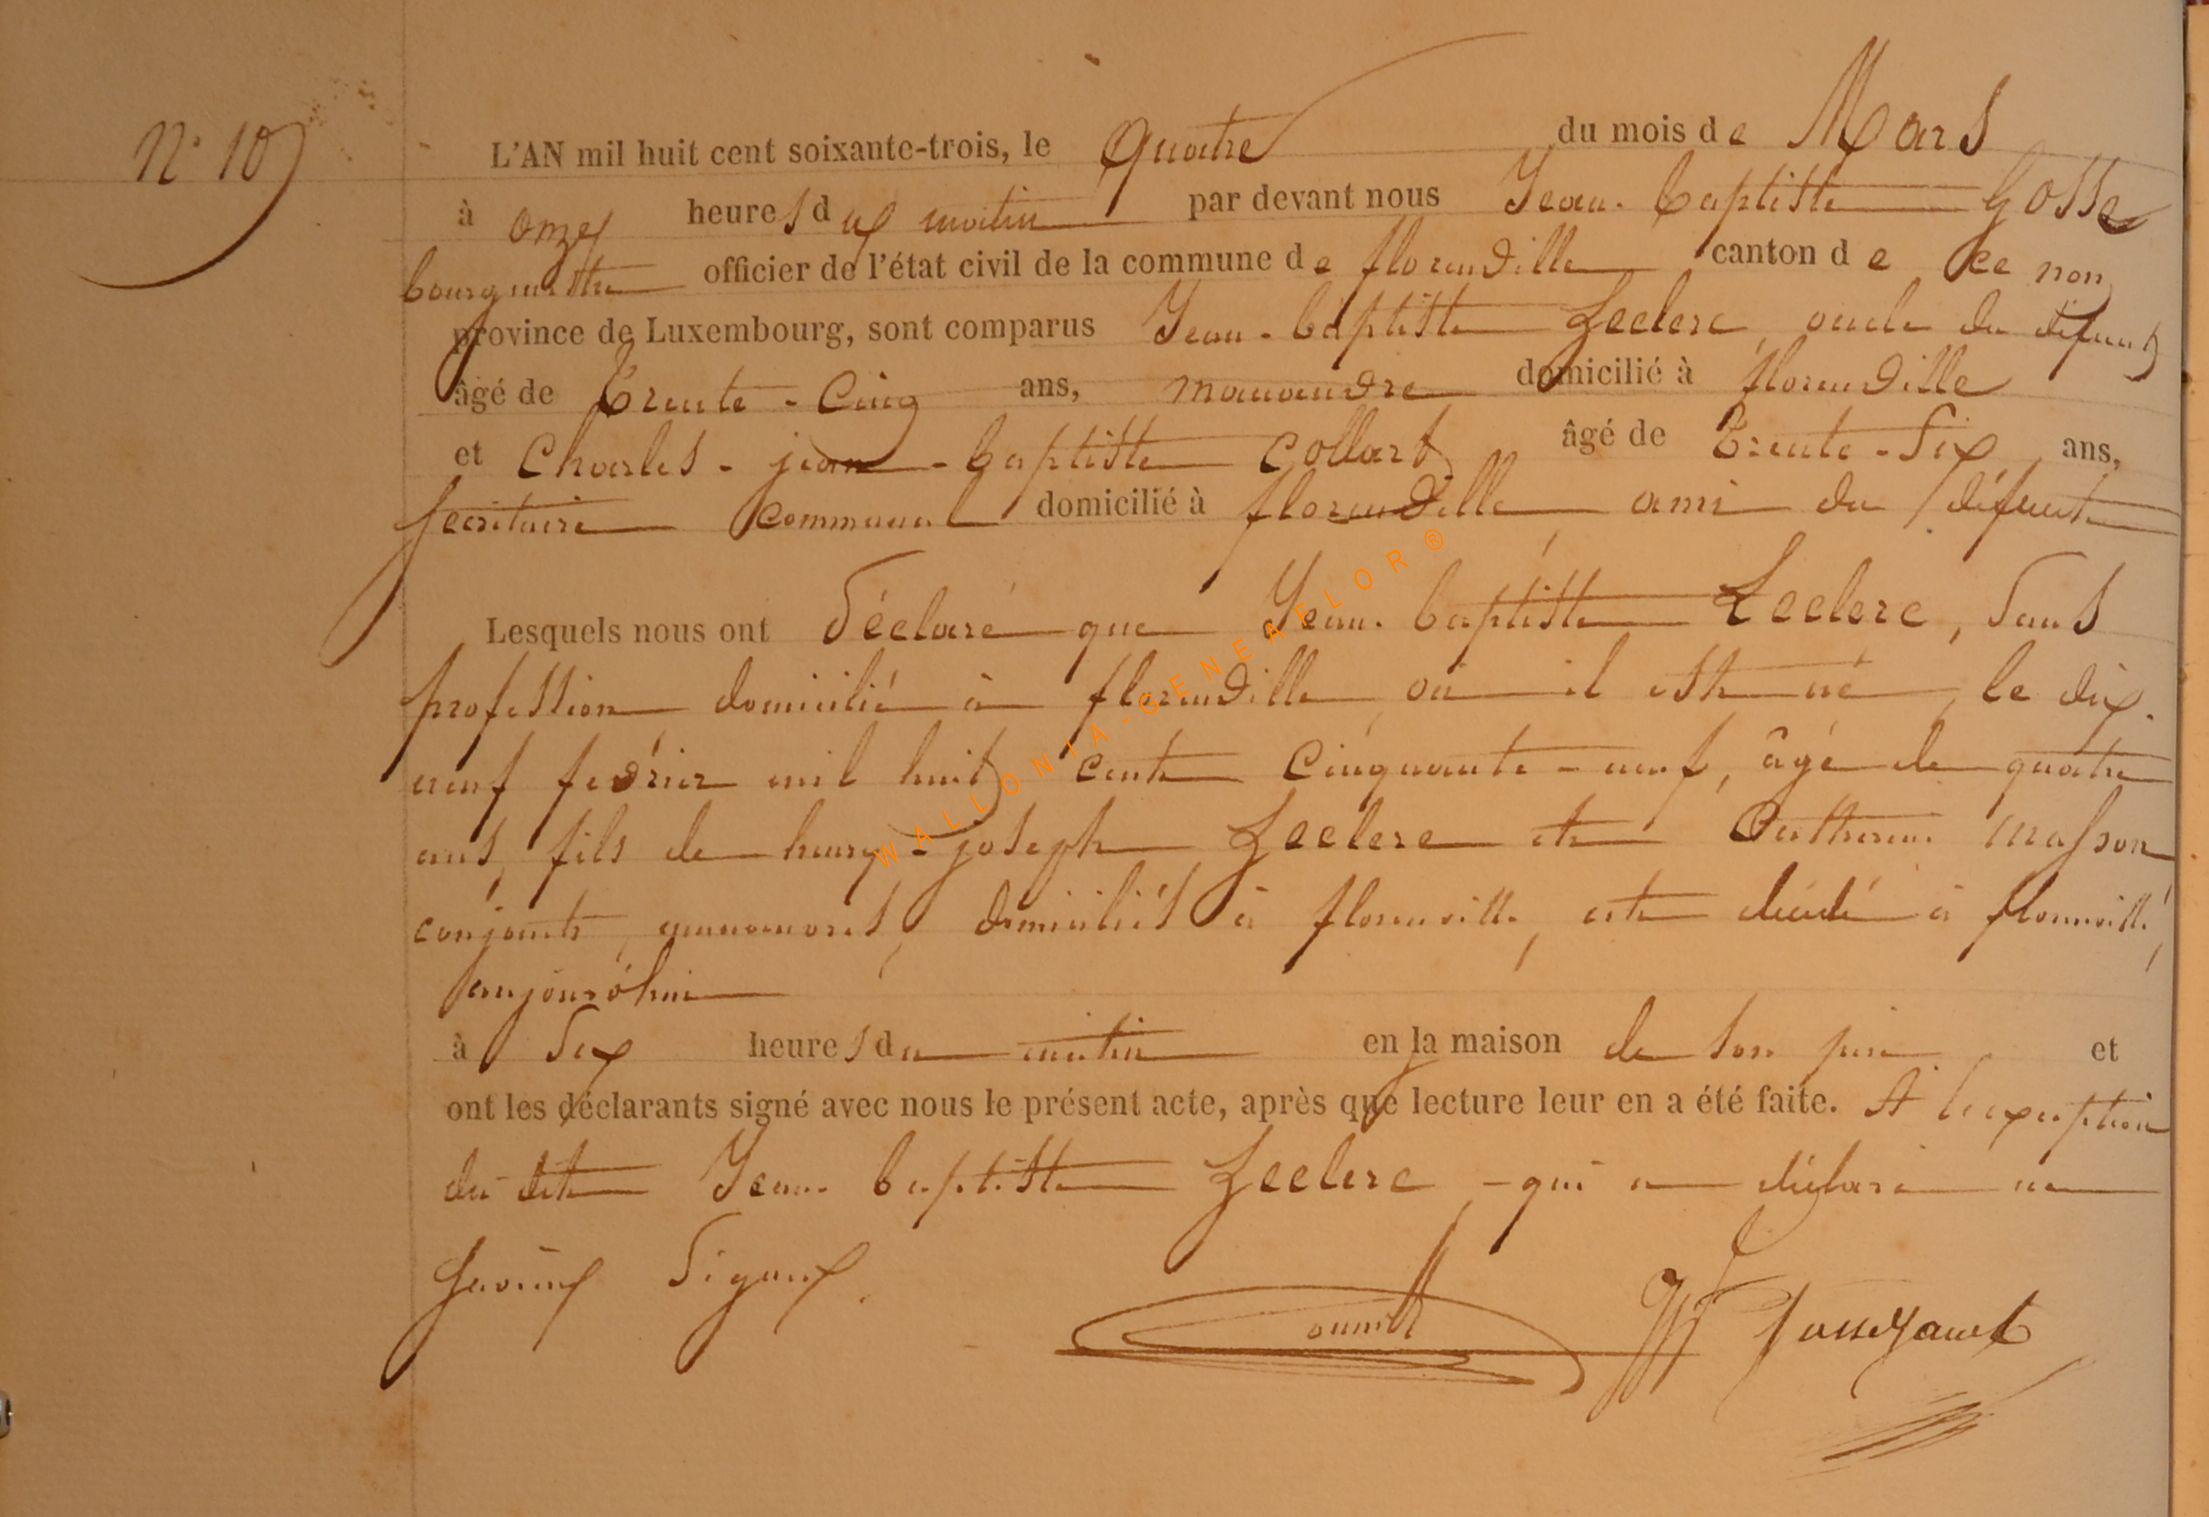 N° 10
L'AN mil huit cent soixante-trois, le quatre du mois de Mars
à onze heures du matin par devant nous Jean-baptiste Gosse
bourgmestre officier de l'état civil de la commune de florenville canton de ce nom
province de Luxembourg, sont comparus Jean-baptiste Leclerc, oncle du défunt
âgé de trente-cinq ans, manœuvre domicilié à florenville
et Charles-jean-baptiste Collart âgé de trente-six ans,
secrétaire communal domicilié à florenville, ami du défunt
Lesquels nous ont déclaré que Jean-baptiste Leclerc, sans
profession domicilié à florenville où il est né, le dix-
neuf fevrier mil huit cent cinquante-neuf, âgé de quatre
ans, fils de henry-joseph Leclerc et Catherine masson
conjoints, domiciliés à florenville, est décédé à florenville,
aujourd'hui
à six heures du matin en la maison de son père et
ont les déclarants signé avec nous le présent acte, après que lecture leur en a été faite. A l'exception
du dit Jean-baptiste Leclerc - qui a déclaré ne
savoir signer.
WALLONIA-GENEAFLOR®